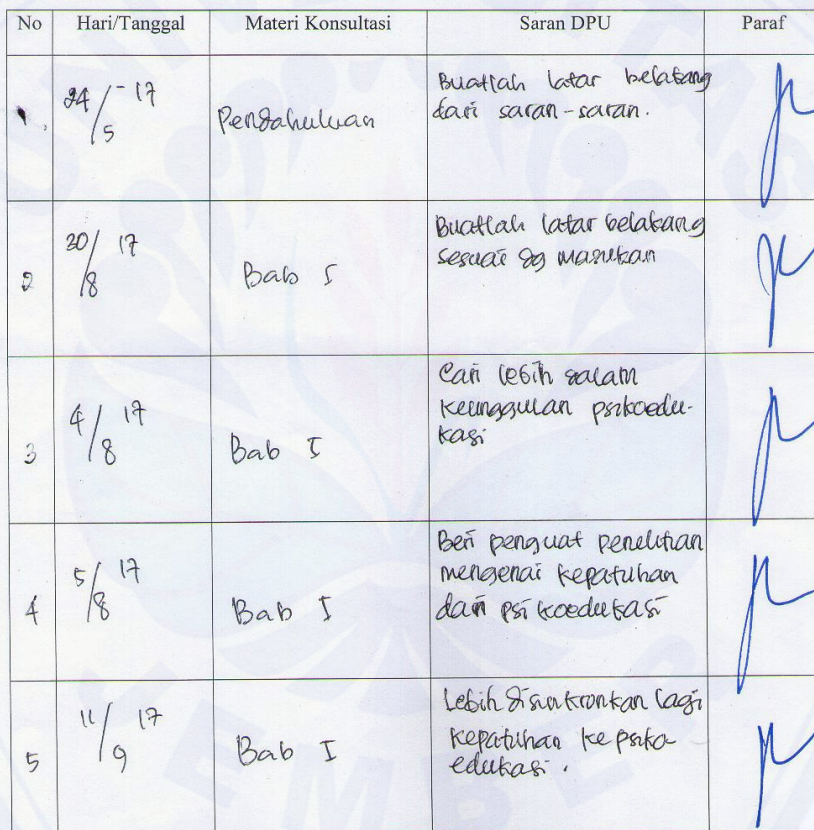 No Hari/Tanggal Materi Konsultasi Saran DPU Paraf
1. 24/5 - 17 Pendahuluan Buatlah latar belakang
dari saran-saran.
2 30/8 17 Bab I Buatlah latar belakang
sesuai dg masukan
3 4/8 17 Bab I Cari lebih dalam
keunggulan psikoedu-
kasi
4 5/8 17 Bab I Beri penguat penelitian
mengenai kepatuhan
dari psikoedukasi
5 11/9 17 Bab I Lebih disinkronkan lagi
kepatuhan ke psiko-
edukasi.
JEMBER